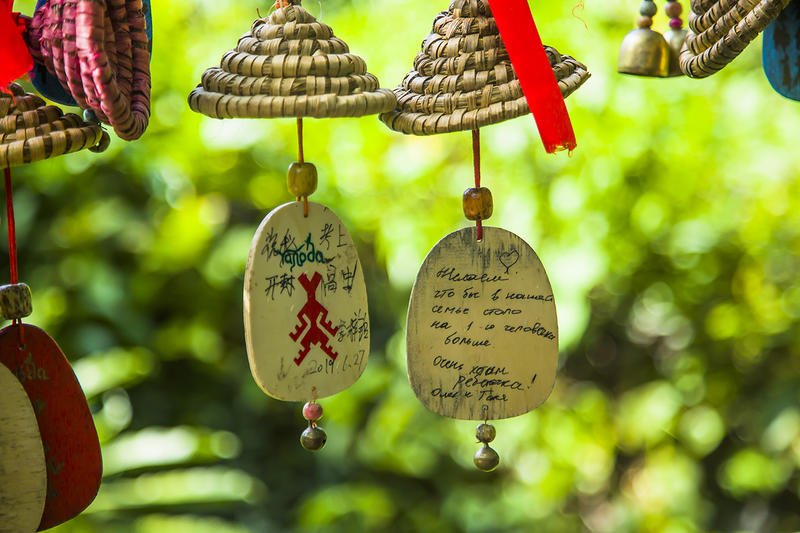 考上
Yanoda
开封 高中
2019.6.27
Желаем
что бы в нашей
семье стало
на 1-го человека
больше
Очень ждем
ребёночка!